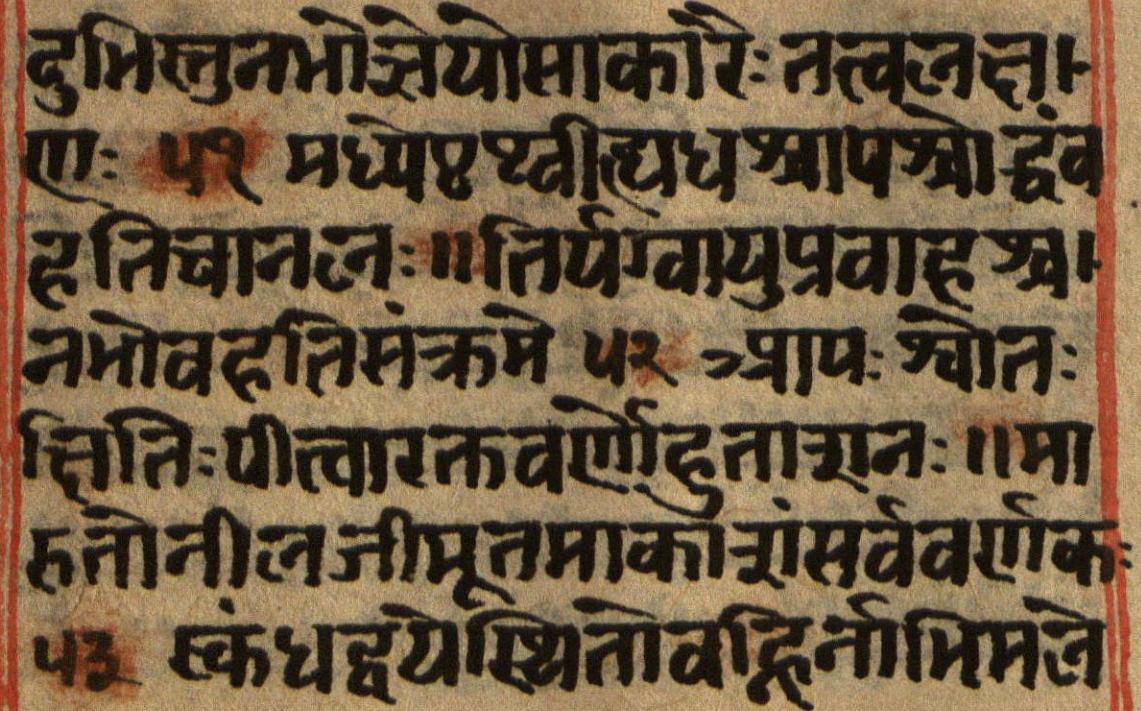 दुभिस्तुनभोज्ञेयोमाकारैः तत्त्वलक्षा
णः ५१ मध्येपृथ्वीह्यधश्चापश्चोर्द्धंव
हतिचानलः ॥ तिर्यग्वायुप्रवाहश्चा
नभोवहतिसंक्रमे ५२ आपः श्वेतः
क्षितिः पीत्वारक्तवर्णोहुताशनः ॥ मा
रुतोनीलजीमूतमाकाशंसर्ववर्णकः
५३ स्कंधद्वयेस्थितोवह्निर्नाभिमले